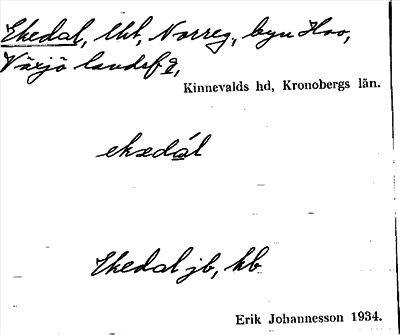 Ekedal, lht, Norreg, byn Hov,
Växjö landsf.,
Kinnevalds hd, Kronobergs län.
ekædál
Ekedal jb, kb
Erik Johannesson 1934.